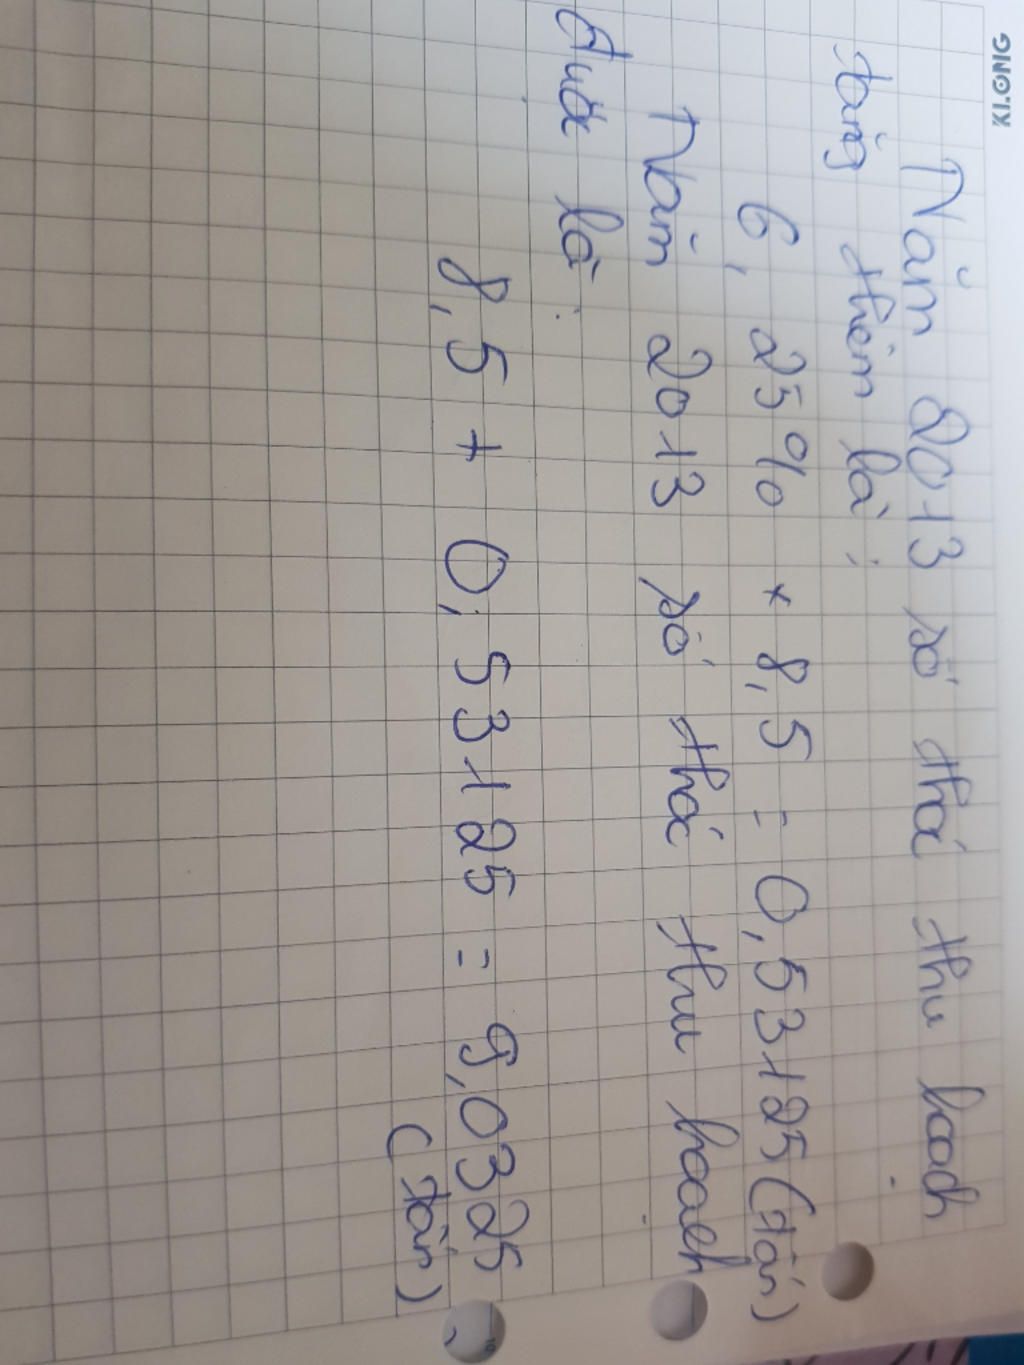 KLONG
Năm 2013 số thóc thu hoạch
tăng thêm là :
6,25% × 8,5 = 0,53125 (tấn)
Năm 2013 số thóc thu hoạch
được là :
8,5 + 0,53125 = 9,0325
(tấn)